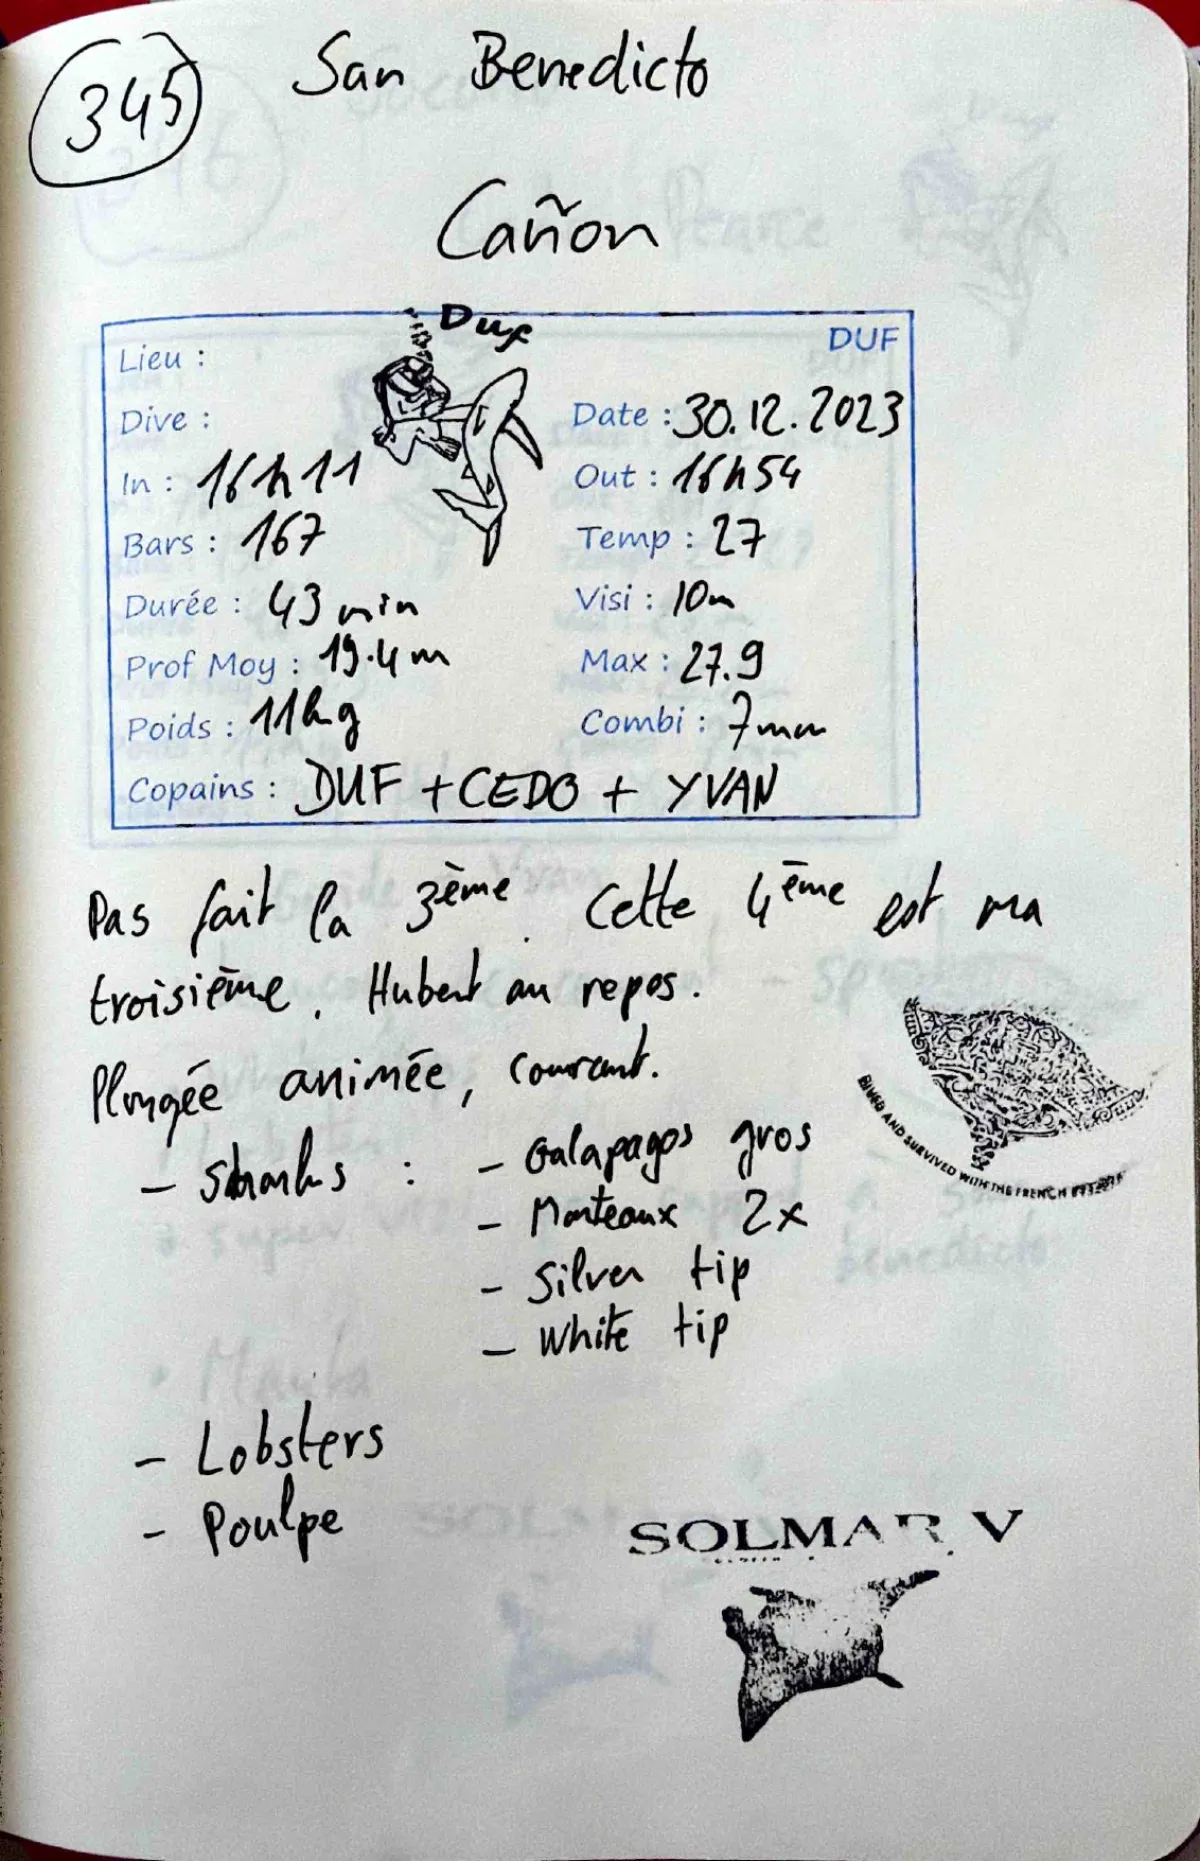 345
San Benedicto
Cañon
Duf
DUF
Lieu :
Dive :
Date : 30.12.2023
In : 16h11
Out : 16h54
Bars : 167
Temp : 27
Durée : 43 min
Visi : 10m
Prof Moy : 19.4 m
Max : 27.9
Poids : 11kg
Combi : 7mm
Copains : DUF + CEDO + YVAN
Pas fait la 3ème. Cette 4ème est ma
troisième. Hubert au repos.
Plongée animée, courant.
- Sharks : - Galapagos gros
- Marteaux 2x
- Silver tip
- White tip
- Lobsters
- Poulpe
DIVED AND SURVIVED WITH THE FRENCH
SOLMAR V